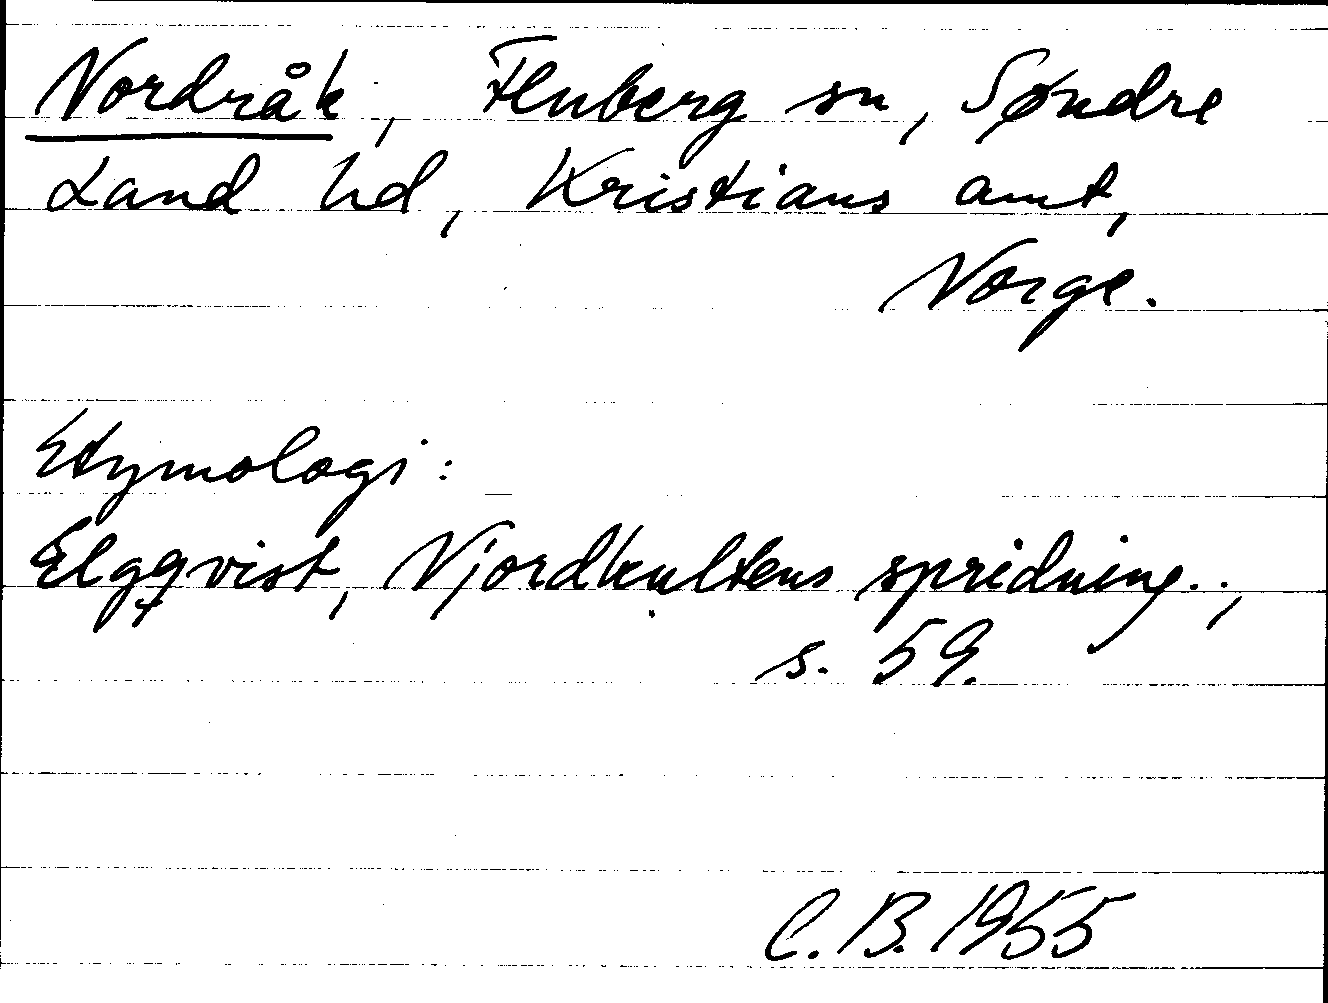 Nordråk, Fluberg sn, Søndre
Land hd, Kristians amt,
Norge.
Etymologi:
Elgqvist, Njordkultens spridning.,
s. 59.
C.B. 1955